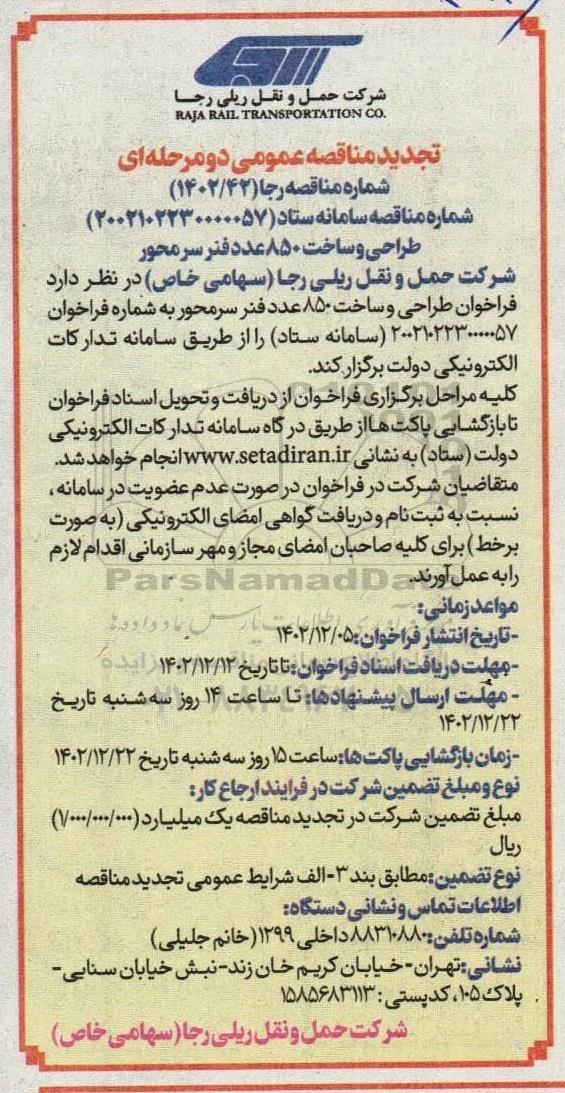 شرکت حمل و نقل ریلی رجا
RAJA RAIL TRANSPORTATION CO.
تجدید مناقصه عمومی دو مرحله‌ای
شماره مناقصه رجا (۱۴۰۲/۴۲)
شماره مناقصه سامانه ستاد (۲۰۰۲۱۰۲۲۳۰۰۰۰۰۵۷)
طراحی و ساخت ۸۵۰ عدد فنر سر محور
شرکت حمل و نقل ریلی رجا (سهامی خاص) در نظر دارد
فراخوان طراحی و ساخت ۸۵۰ عدد فنر سرمحور به شماره فراخوان
۲۰۰۲۱۰۲۲۳۰۰۰۰۰۵۷ (سامانه ستاد) را از طریق سامانه تدارکات
الکترونیکی دولت برگزار کند.
کلیه مراحل برگزاری فراخوان از دریافت و تحویل اسناد فراخوان
تا بازگشایی پاکت ها از طریق درگاه سامانه تدارکات الکترونیکی
دولت (ستاد) به نشانی www.setadiran.ir انجام خواهد شد.
متقاضیان شرکت در فراخوان در صورت عدم عضویت در سامانه،
نسبت به ثبت نام و دریافت گواهی امضای الکترونیکی (به صورت
برخط) برای کلیه صاحبان امضای مجاز و مهر سازمانی اقدام لازم
را به عمل آورند.
ParsNamadData
مواعد زمانی:
-تاریخ انتشار فراخوان: ۱۴۰۲/۱۲/۰۵
-مهلت دریافت اسناد فراخوان: تا تاریخ ۱۴۰۲/۱۲/۱۲
- مهلت ارسال پیشنهادها: تا ساعت ۱۴ روز سه شنبه تاریخ
۱۴۰۲/۱۲/۲۲
-زمان بازگشایی پاکت ها: ساعت ۱۵ روز سه شنبه تاریخ ۱۴۰۲/۱۲/۲۲
نوع و مبلغ تضمین شرکت در فرایند ارجاع کار:
مبلغ تضمین شرکت در تجدید مناقصه یک میلیارد (۱/۰۰۰/۰۰۰/۰۰۰)
ریال
نوع تضمین: مطابق بند ۳-الف شرایط عمومی تجدید مناقصه
اطلاعات تماس و نشانی دستگاه:
شماره تلفن: ۸۸۳۱۰۸۸۰ داخلی ۱۲۹۹ (خانم جلیلی)
نشانی: تهران- خیابان کریم خان زند- نبش خیابان سنایی-
پلاک ۱۰۵، کدپستی: ۱۵۸۵۶۸۳۱۱۳
شرکت حمل و نقل ریلی رجا (سهامی خاص)